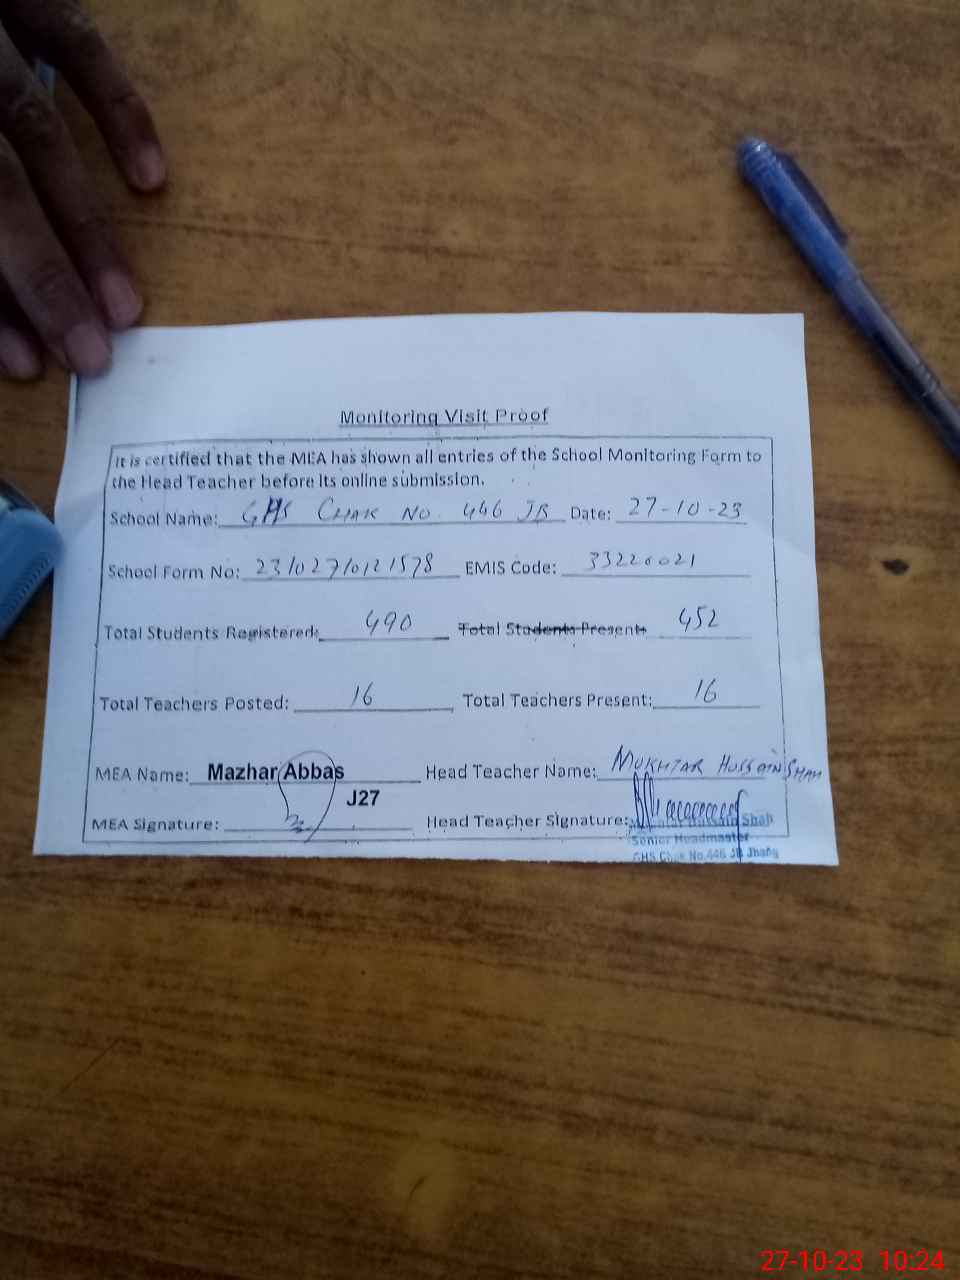 Monitoring Visit Proof
It is certified that the MEA has shown all entries of the School Monitoring Form to
the Head Teacher before its online submission.
School Name: GHS CHAK NO. 446 JB Date: 27-10-23
School Form No: EMIS Code: 33220021
Total Students Registered: 490 Total Students Present: 452
Total Teachers Posted: 16 Total Teachers Present: 16
MEA Name: Mazhar Abbas Head Teacher Name: MUKHTAR HUSSAIN SHAH
J27
MEA Signature: Head Teacher Signature:
Hussain Shah
Senior Headmaster
GHS Chak No.446 JB Jhang
27-10-23 10:24